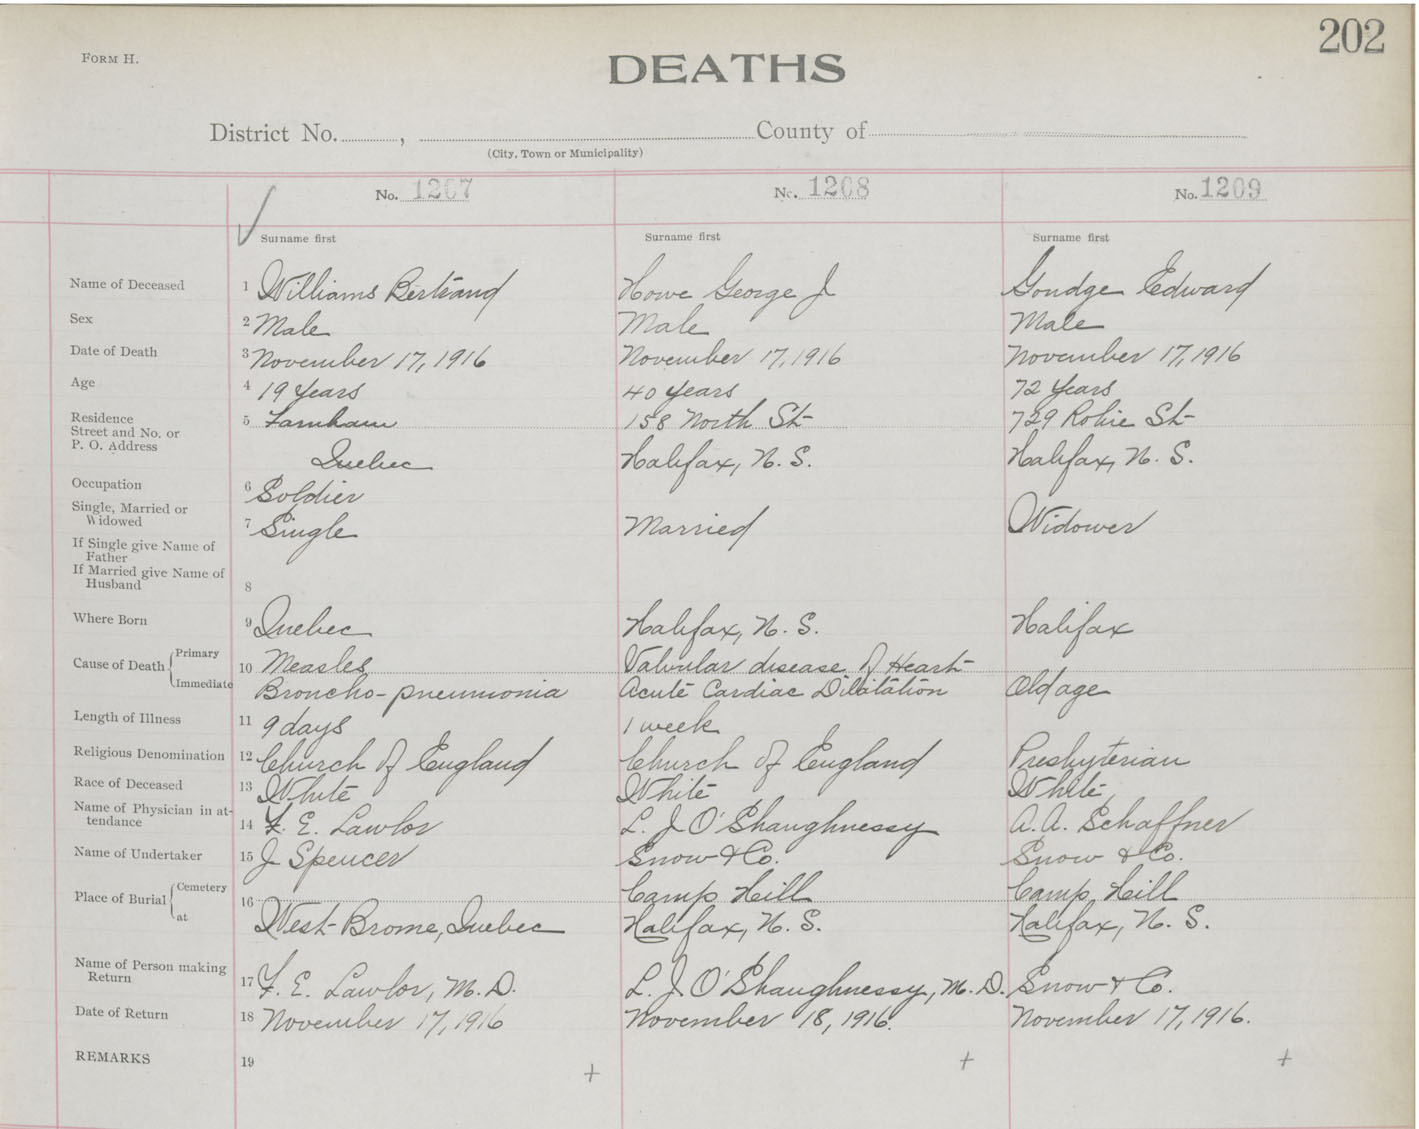 202
FORM H.
DEATHS
District No. , County of
(City, Town or Municipality)
No. 1207 No. 1208 No. 1209
Surname first Surname first Surname first
Name of Deceased 1 Williams Bertrand Howe George J Goudge Edward
Sex 2 Male Male Male
Date of Death 3 November 17, 1916 November 17, 1916 November 17, 1916
Age 4 19 Years 40 Years 72 Years
Residence 5 Farnham 158 North St 729 Robie St
Street and No. or
P. O. Address
Quebec Halifax, N. S. Halifax, N. S.
Occupation 6 Soldier
Single, Married or
Widowed 7 Single Married Widower
If Single give Name of
Father
If Married give Name of
Husband 8
Where Born 9 Quebec Halifax, N. S. Halifax
Cause of Death Primary 10 Measles Valvular disease of Heart
Immediate Broncho-pneumonia Acute Cardiac Dilatation Old age
Length of Illness 11 9 days 1 week
Religious Denomination 12 Church of England Church of England Presbyterian
Race of Deceased 13 White White White
Name of Physician in at-
tendance 14 F. E. Lawlor L. J. O'Shaughnessy A. A. Schaffner
Name of Undertaker 15 J Spencer Snow & Co. Snow & Co.
Place of Burial Cemetery 16 Camp Hill Camp Hill
at West Brome, Quebec Halifax, N. S. Halifax, N. S.
Name of Person making
Return 17 F. E. Lawlor, M. D. L. J. O'Shaughnessy, M. D. Snow & Co.
Date of Return 18 November 17, 1916 November 18, 1916. November 17, 1916.
REMARKS 19
+ + +